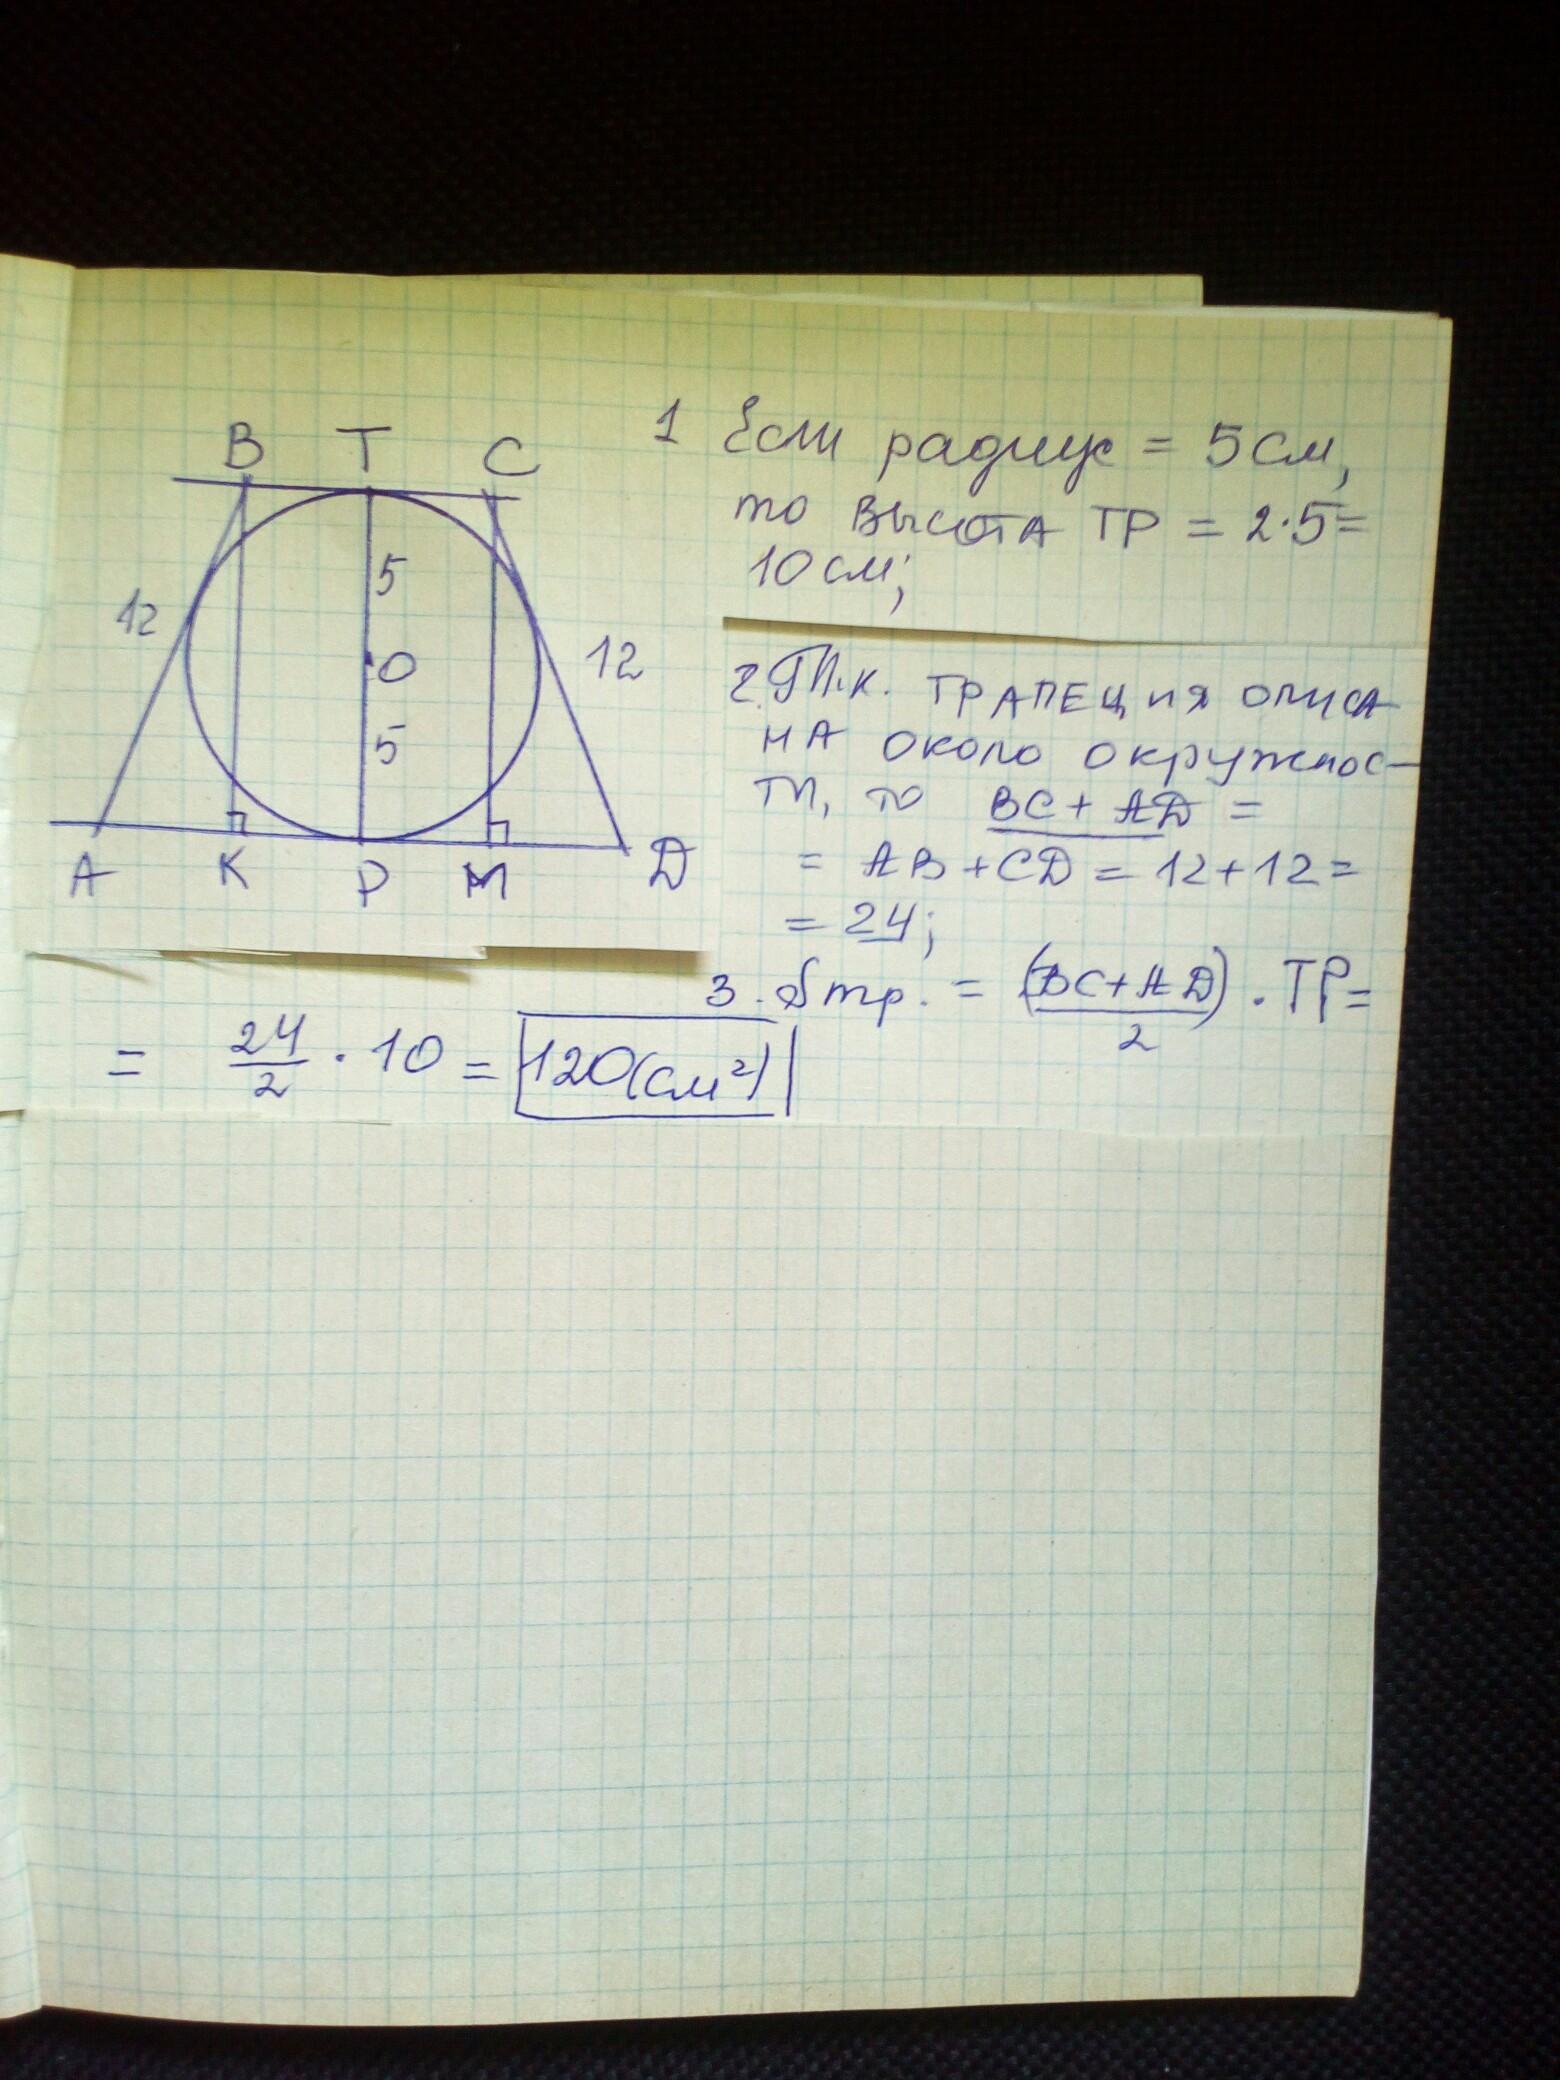 B T C
1 Если радиус = 5см,
то высота TP = 2·5=
10см;
5
12
O
12
2. Т.к. трапеция описа-
на около окружнос-
ти, то BC + AD =
5
= AB + CD = 12 + 12 =
A K P M D
= 24;
3. Sтр. = (BC+AD)/2 · TP =
= 24/2 · 10 = 120(см²)